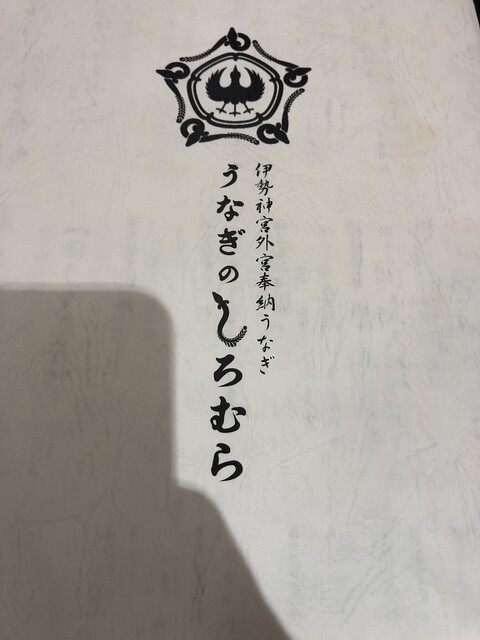 伊勢神宮外宮奉納うなぎ
うなぎのしろむら